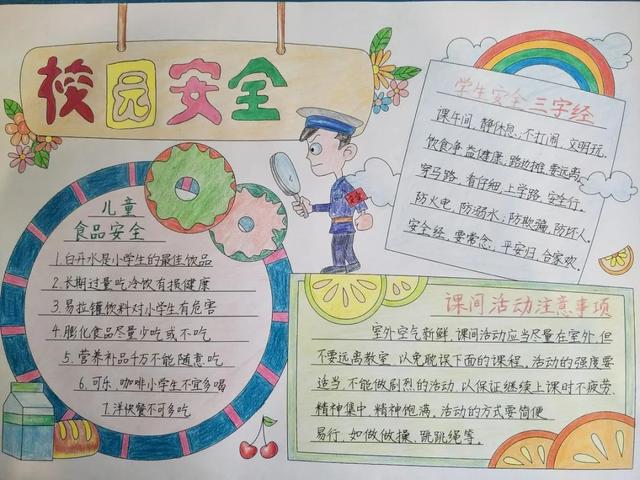 校园安全
儿童
食品安全
1.白开水是小学生的最佳饮品
2.长期过量吃冷饮有损健康
3.易拉罐饮料对小学生有危害
4.膨化食品尽量少吃或不吃
5.营养补品千万不能随意吃
6.可乐、咖啡小学生不宜多喝
7.洋快餐不可多吃
学生安全三字经
课午间，静休息，不打闹，文明玩。
饮食净，益健康，路边摊，要远离，
穿马路，看仔细，上学路，安全行。
防火电，防溺水，防欺骗，防坏人。
安全经，要常念，平安归，合家欢。
课间活动注意事项
室外空气新鲜，课间活动应当尽量在室外，但
不要远离教室，以免耽误下面的课程。活动的强度要
适当，不能做剧烈的活动，以保证继续上课时不疲劳、
精神集中，精神饱满。活动的方式要简便
易行，如做做操、跳跳绳等。